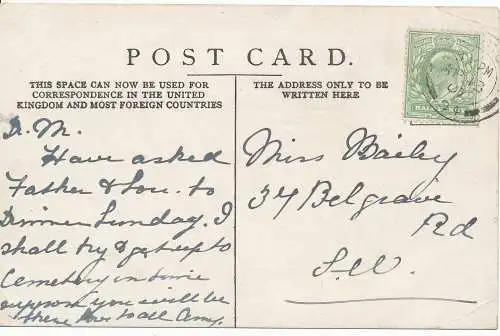 POST CARD.
THIS SPACE CAN NOW BE USED FOR
CORRESPONDENCE IN THE UNITED
KINGDOM AND MOST FOREIGN COUNTRIES
THE ADDRESS ONLY TO BE
WRITTEN HERE
D. M.
Have asked
Father & Lou. to
Dinner Sunday. I
shall try & get up to
Cemetery in time
suppose you will be
there
Miss Bailey
34 Belgrave
Rd
S.W.